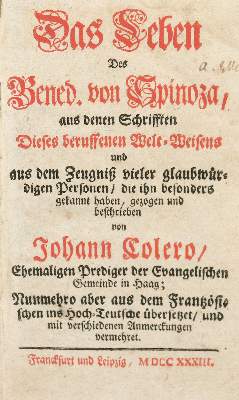 Das Leben
Des
Bened. von Spinoza,
aus denen Schrifften
Dieses beruffenen Welt-Weisens
und
aus dem Zeugniß vieler glaubwür-
digen Personen/ die ihn besonders
gekannt haben, gezogen und
beschrieben
von
Johann Colero/
Ehemaligen Prediger der Evangelischen
Gemeinde in Haag;
Nunmehro aber aus dem Frantzösi-
schen ins Hoch-Teutsche übersetzet/ und
mit verschiedenen Anmerckungen
vermehret.
Franckfurt und Leipzig, MDCCXXXIII.